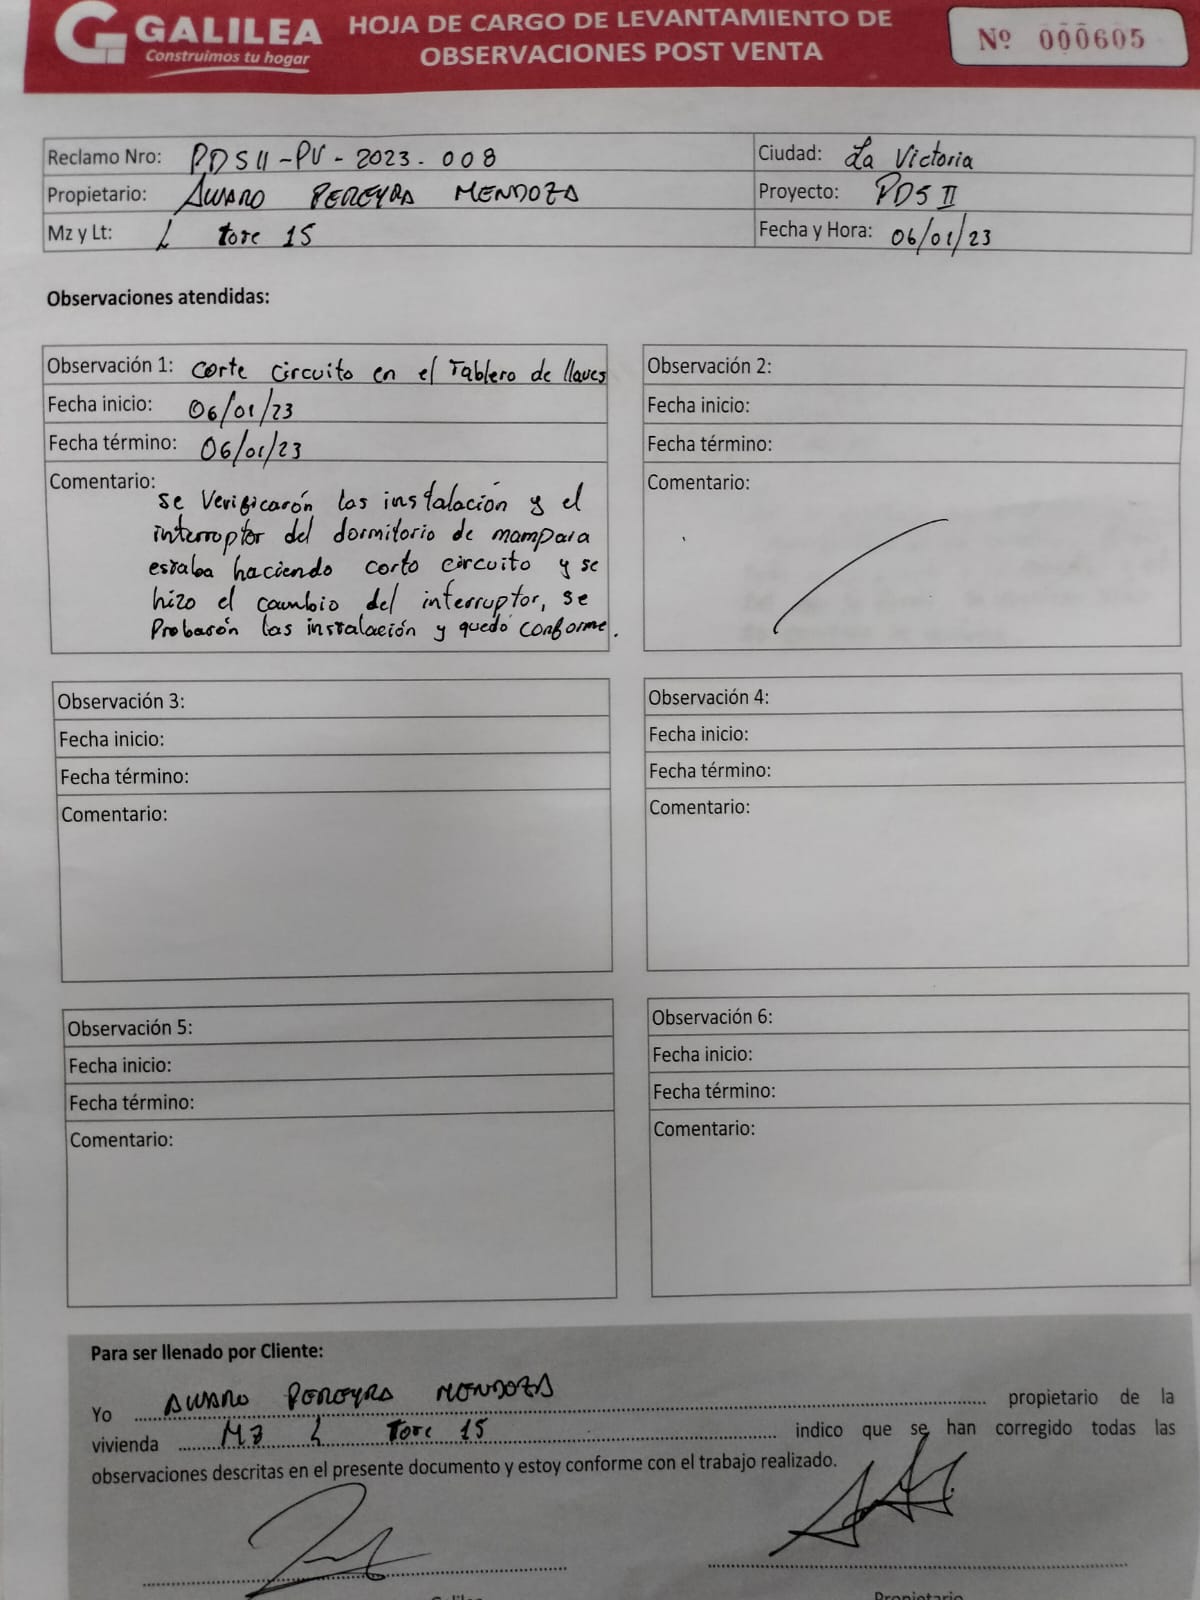 GALILEA
Construimos tu hogar
HOJA DE CARGO DE LEVANTAMIENTO DE
OBSERVACIONES POST VENTA
Nº 000605
Reclamo Nro: PDSII-PV-2023-008
Ciudad: La Victoria
Propietario: ALVARO PEREYRA MENDOZA
Proyecto: PDS II
Mz y Lt: L torre 15
Fecha y Hora: 06/01/23
Observaciones atendidas:
Observación 1: Corte Circuito en el Tablero de llaves
Fecha inicio: 06/01/23
Fecha término: 06/01/23
Comentario:
se Verificarón las instalación y el
interruptor del dormitorio de mampara
estaba haciendo corto circuito y se
hizo el cambio del interruptor, se
Probarón las instalación y quedó conforme.
Observación 2:
Fecha inicio:
Fecha término:
Comentario:
Observación 3:
Fecha inicio:
Fecha término:
Comentario:
Observación 4:
Fecha inicio:
Fecha término:
Comentario:
Observación 5:
Fecha inicio:
Fecha término:
Comentario:
Observación 6:
Fecha inicio:
Fecha término:
Comentario:
Para ser llenado por Cliente:
Yo ALVARO PEREYRA MENDOZA propietario de la
vivienda Mz L Torre 15 indico que se han corregido todas las
observaciones descritas en el presente documento y estoy conforme con el trabajo realizado.
Galilea
Propietario